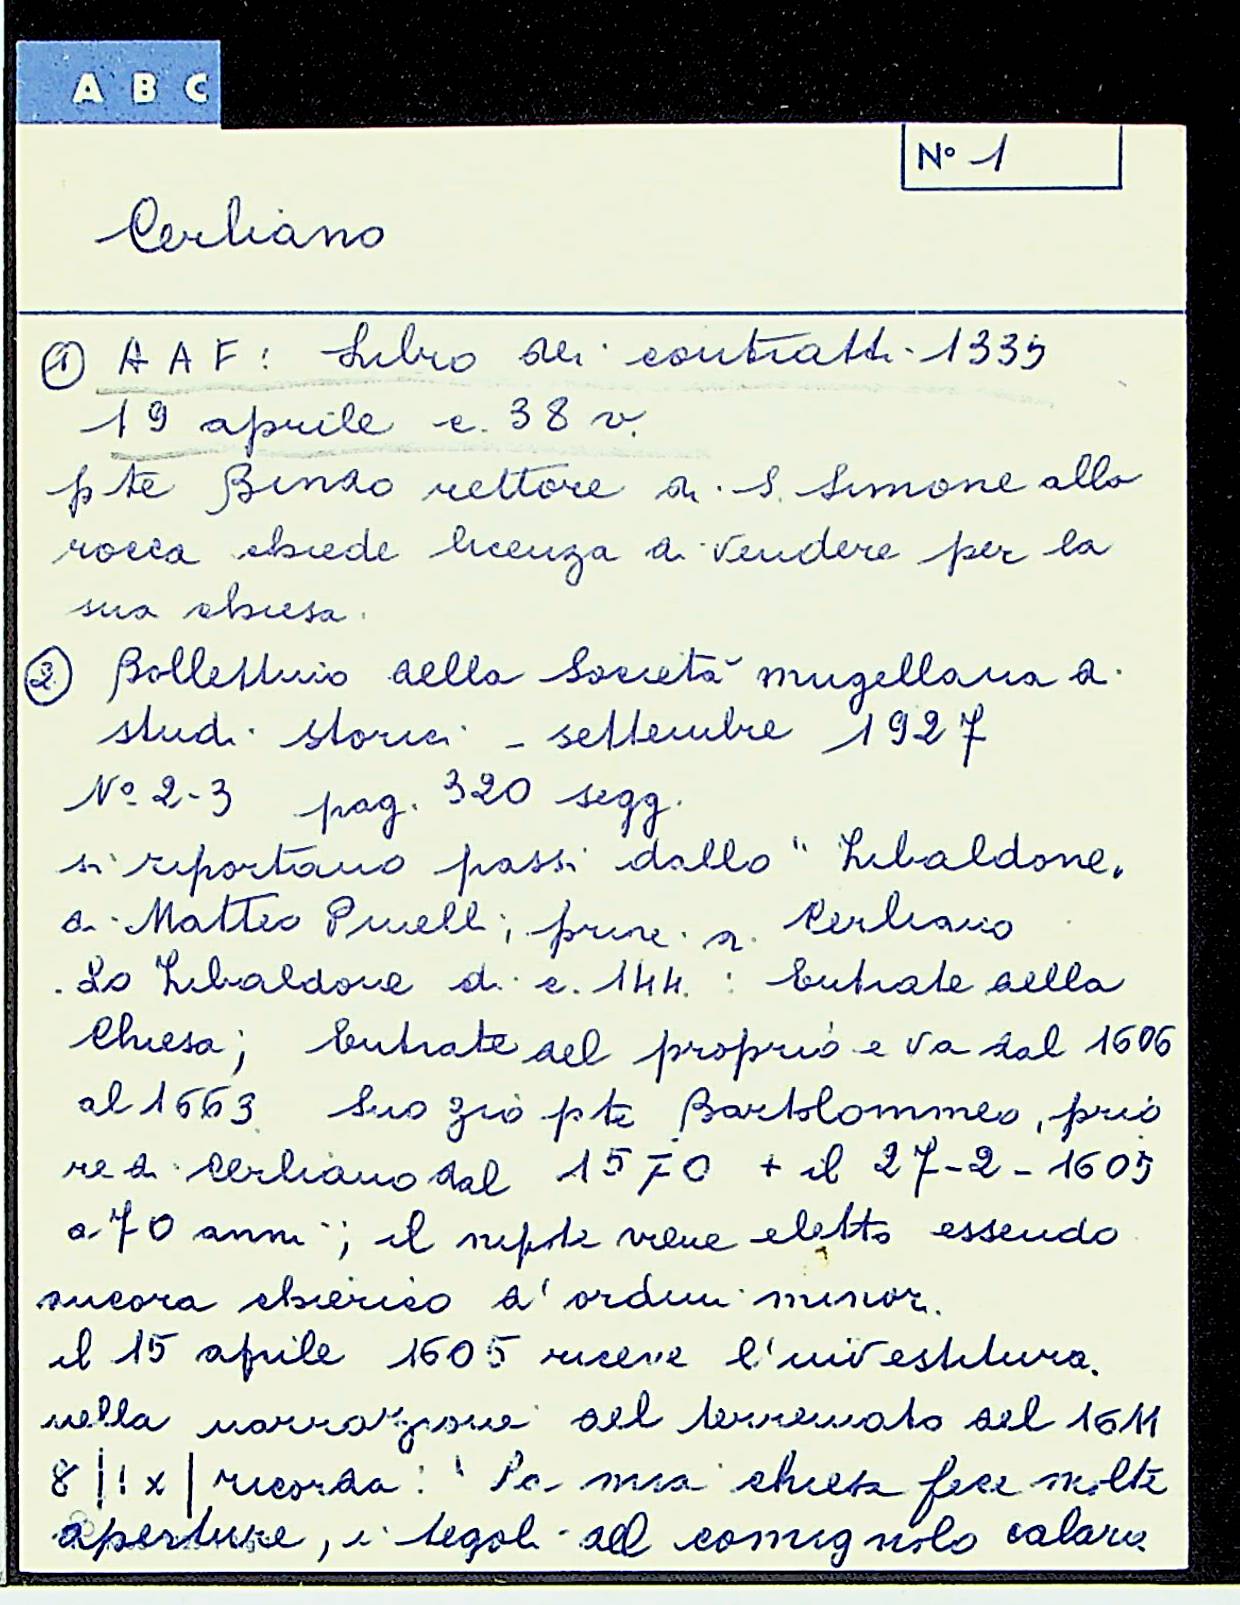 A B C
N° 1
Cerliano
① A A F: Libro dei contratti 1335
19 aprile c. 38 v.
pte Bindo rettore di S. Simone alla
rocca chiede licenza di vendere per la
sua chiesa.
② Bollettino della Società mugellana di
studi storici - settembre 1927
N° 2-3 pag. 320 segg.
si riportano passi dallo "Zibaldone"
di Matteo Pinelli; prior. di Cerliano
. Lo Zibaldone di c. 144. : Entrate della
Chiesa; Entrate del proprio e va dal 1606
al 1663 Suo zio pte Bartolommeo, prio
re di Cerliano dal 1570 + il 27-2-1605
a 70 anni; il nipote viene eletto essendo
ancora chierico d'ordini minori.
il 15 aprile 1605 riceve l'investitura.
nella narrazione del terremoto del 1611
8 | ! x | ricorda: "La mia chiesa fece molte
aperture, i tegoli del comignolo calaro